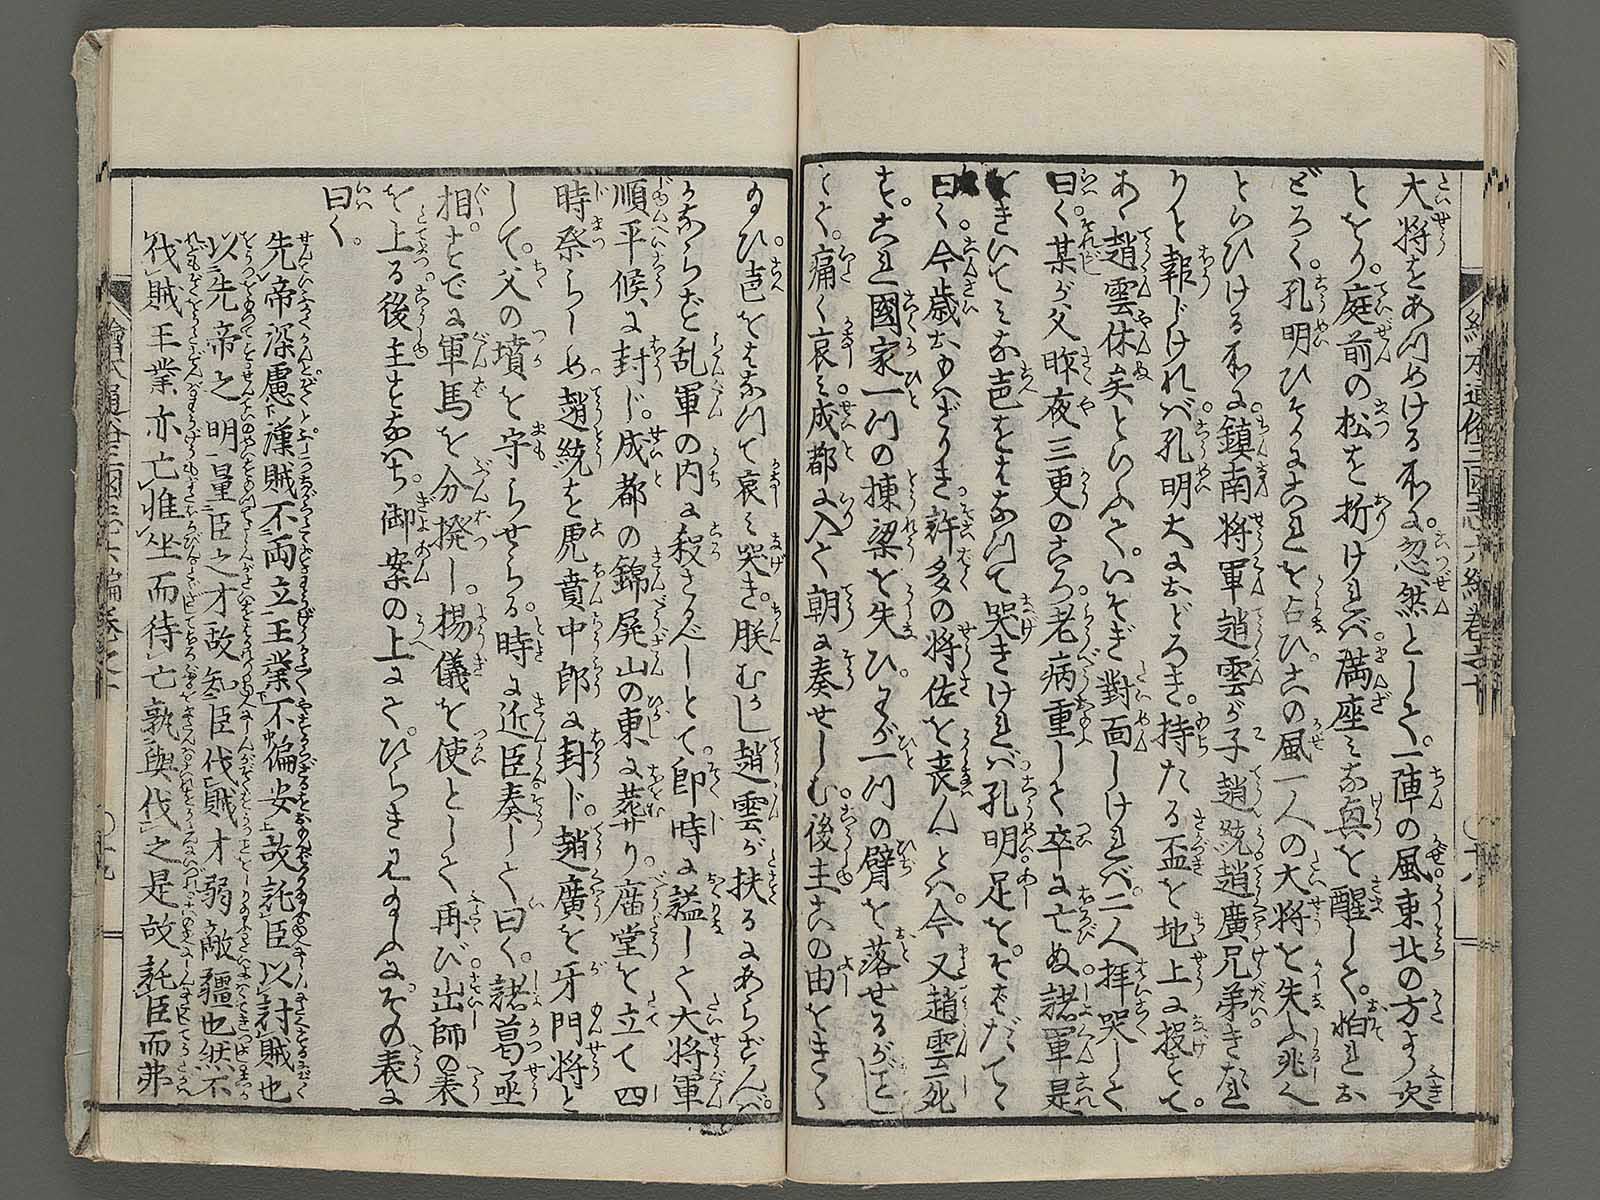 大将をあつめける所に。忽然として。一陣の風東北の方より吹
をこり。庭前の松を折ければ。満座みな興を醒して。怕れお
どろく。孔明ひそかにこれを占ひ。この風一人の大将を失ふ兆ん
といひける所に。鎮南将軍趙雲が子趙統趙廣兄弟きたれ
りと報じければ。孔明大におどろき。持たる盃を地上に投すて。
あゝ趙雲休矣といふて。いそぎ對面しければ。二人拝哭して
曰く。某が父昨夜三更のころ。老病重して卒に亡ぬ。諸軍是
をきいてみな声をはなつて哭きければ。孔明足をそばだてゝ
曰く。今歳おもはざりき許多の将佐を喪んとは。今又趙雲死
す。これ國家一つの棟梁を失ひ。わが一つの臂を落せるがごとし
とて。痛く哀み。成都に入て朝に奏せしむ。後主この由をきゝ
給ひ。声をはなつて哀み哭き。朕むかし趙雲が扶るにあらずんば。
かならず乱軍の内に殺さるべしとて。即時に謚して大将軍
順平候に封じ。成都の錦屏山の東に葬り。廟堂を立て四
時祭らしめ。趙統を虎賁中郎に封じ。趙廣を牙門将と
して。父の墳を守らせらる。時に近臣奏して曰く。諸葛丞
相。すでに軍馬を分撥し。楊儀を使として。再び出師の表
を上る。後主すなはち御案の上にて。ひらき見給ふに。その表に
曰く。
先帝深慮漢賊不両立王業不偏安故託臣以討賊也
以先帝之明量臣之才故知臣伐賊才弱敵疆也然不
伐賊王業亦亡惟坐而待亡孰與伐之是故託臣而弗